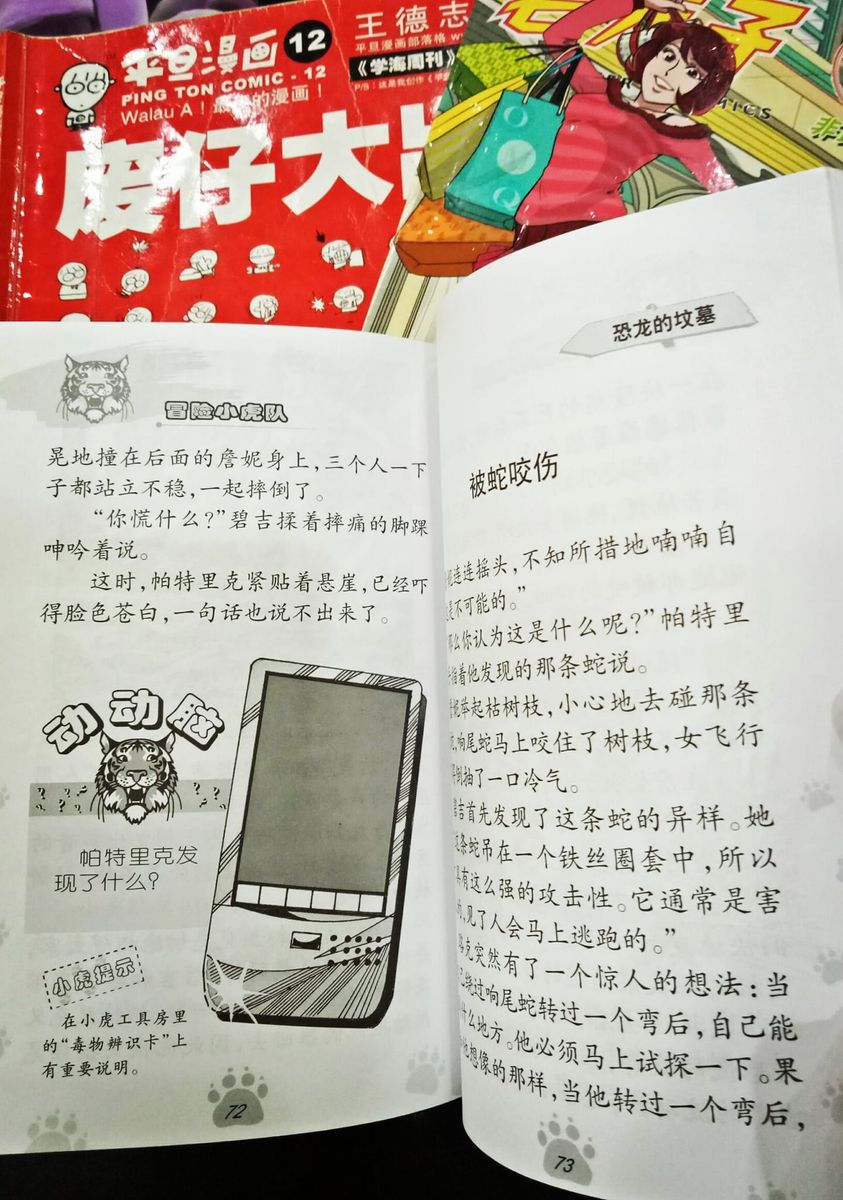 平旦漫画 12
PING TON COMIC - 12
Walau A！最 的漫画！
王德志
平旦漫画部落格 w
《学海周刊》
P/S：这是我创作《学
废仔大
MICS
冒险小虎队
晃地撞在后面的詹妮身上，三个人一下
子都站立不稳，一起摔倒了。
“你慌什么？”碧吉揉着摔痛的脚踝
呻吟着说。
这时，帕特里克紧贴着悬崖，已经吓
得脸色苍白，一句话也说不出来了。
动动脑
? ? ? ? ? ? ? ?
帕特里克发
现了什么？
小虎提示
在小虎工具房里
的“毒物辨识卡”上
有重要说明。
72
恐龙的坟墓
被蛇咬伤
妮连连摇头，不知所措地喃喃自
是不可能的。”
那么你认为这是什么呢？”帕特里
指着他发现的那条蛇说。
妮举起枯树枝，小心地去碰那条
响尾蛇马上咬住了树枝，女飞行
倒抽了一口冷气。
碧吉首先发现了这条蛇的异样。她
这条蛇吊在一个铁丝圈套中，所以
具有这么强的攻击性。它通常是害
的，见了人会马上逃跑的。”
路克突然有了一个惊人的想法：当
已绕过响尾蛇转过一个弯后，自己能
什么地方。他必须马上试探一下。果
他想像的那样，当他转过一个弯后，
73